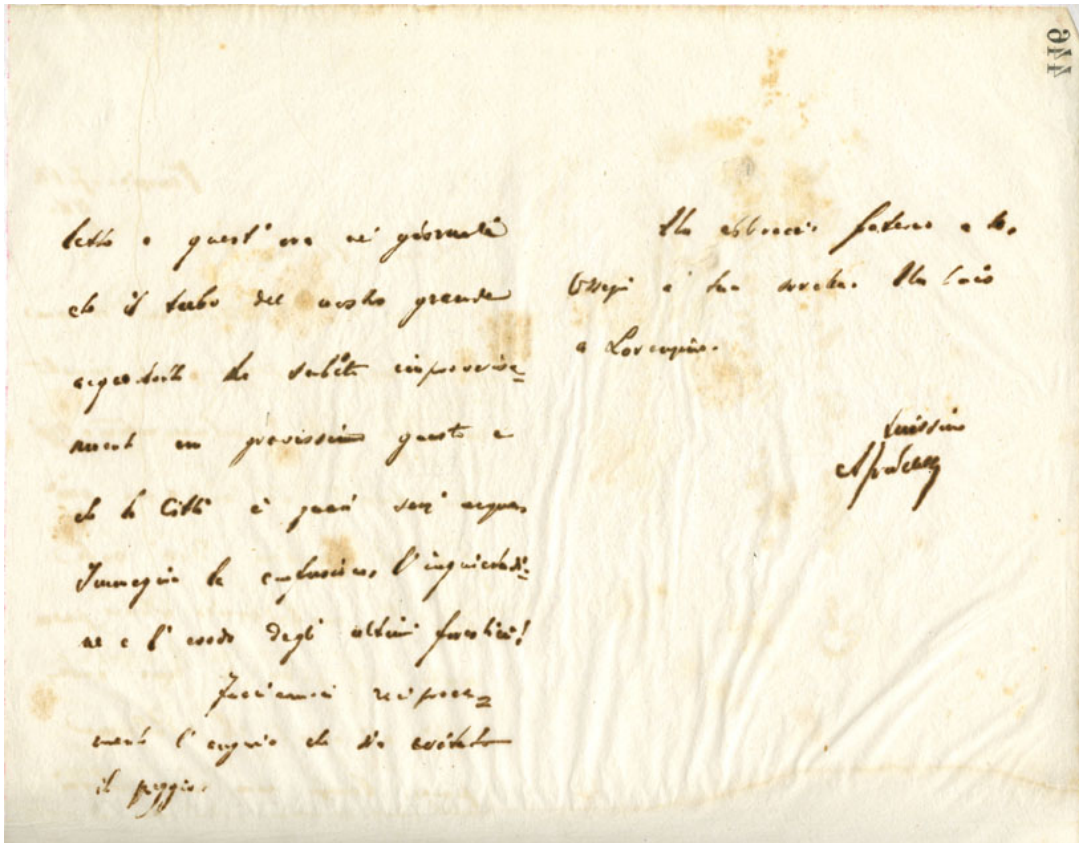 letto a quest' ora nei giornali
che il tubo del nostro grande
acquedotto ha subito improvvisa=
mente un gravissimo guasto e
che la Città è quasi senz' acqua.
Immagina la confusione, l' inquietudi=
ne e l' esodo degli ultimi forestieri!
Facciamoci reciproca=
mente l' augurio che sia evitato
il peggio.
Un abbraccio fraterno a te.
Ossequi a tua sorella. Un bacio
a Lorenzino.
446